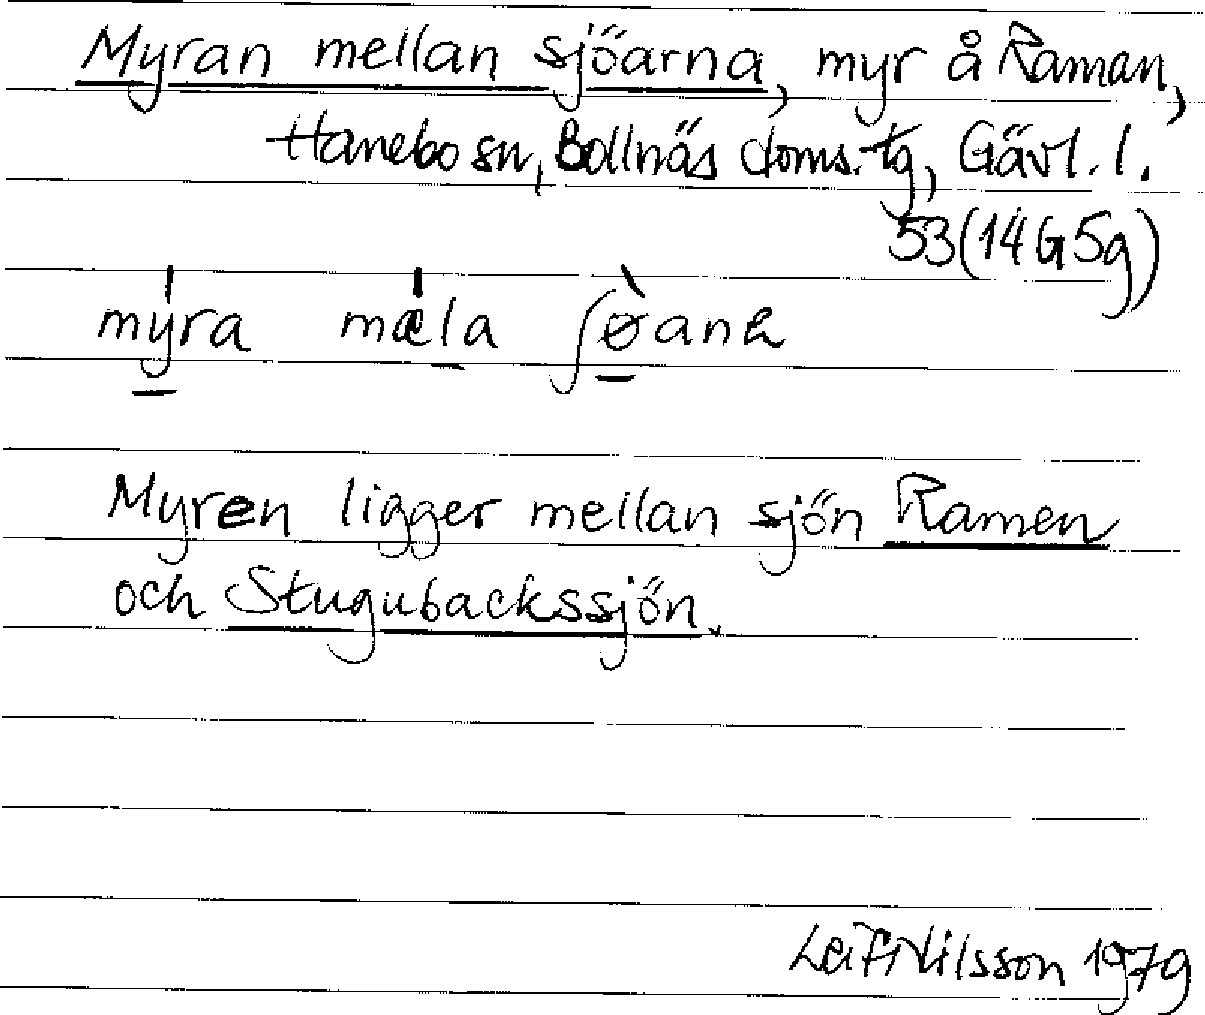 Myran mellan sjöarna, myr å Raman,
Hanebo sn, Bollnäs doms. tg, Gävl. l.
53(14G5g)
my̲̍ra mæ̍l̲a ʃø̲̀ana
Myren ligger mellan sjön Ramen
och Stugubackssjön.
Leif Nilsson 1979